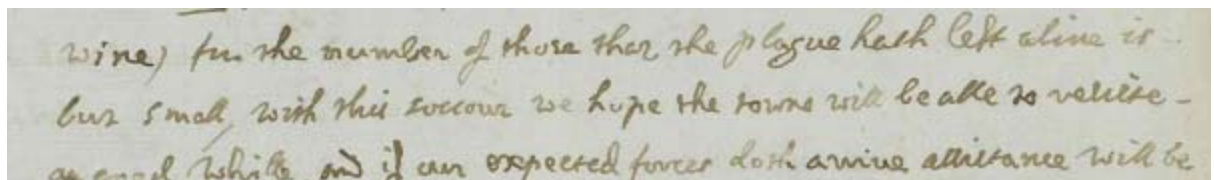 wine) for the number of those that the plague hath left alive is
but small, with this succour we hope the towne will be able to resiste
a good while and if our expected forces doth arrive assistance will be